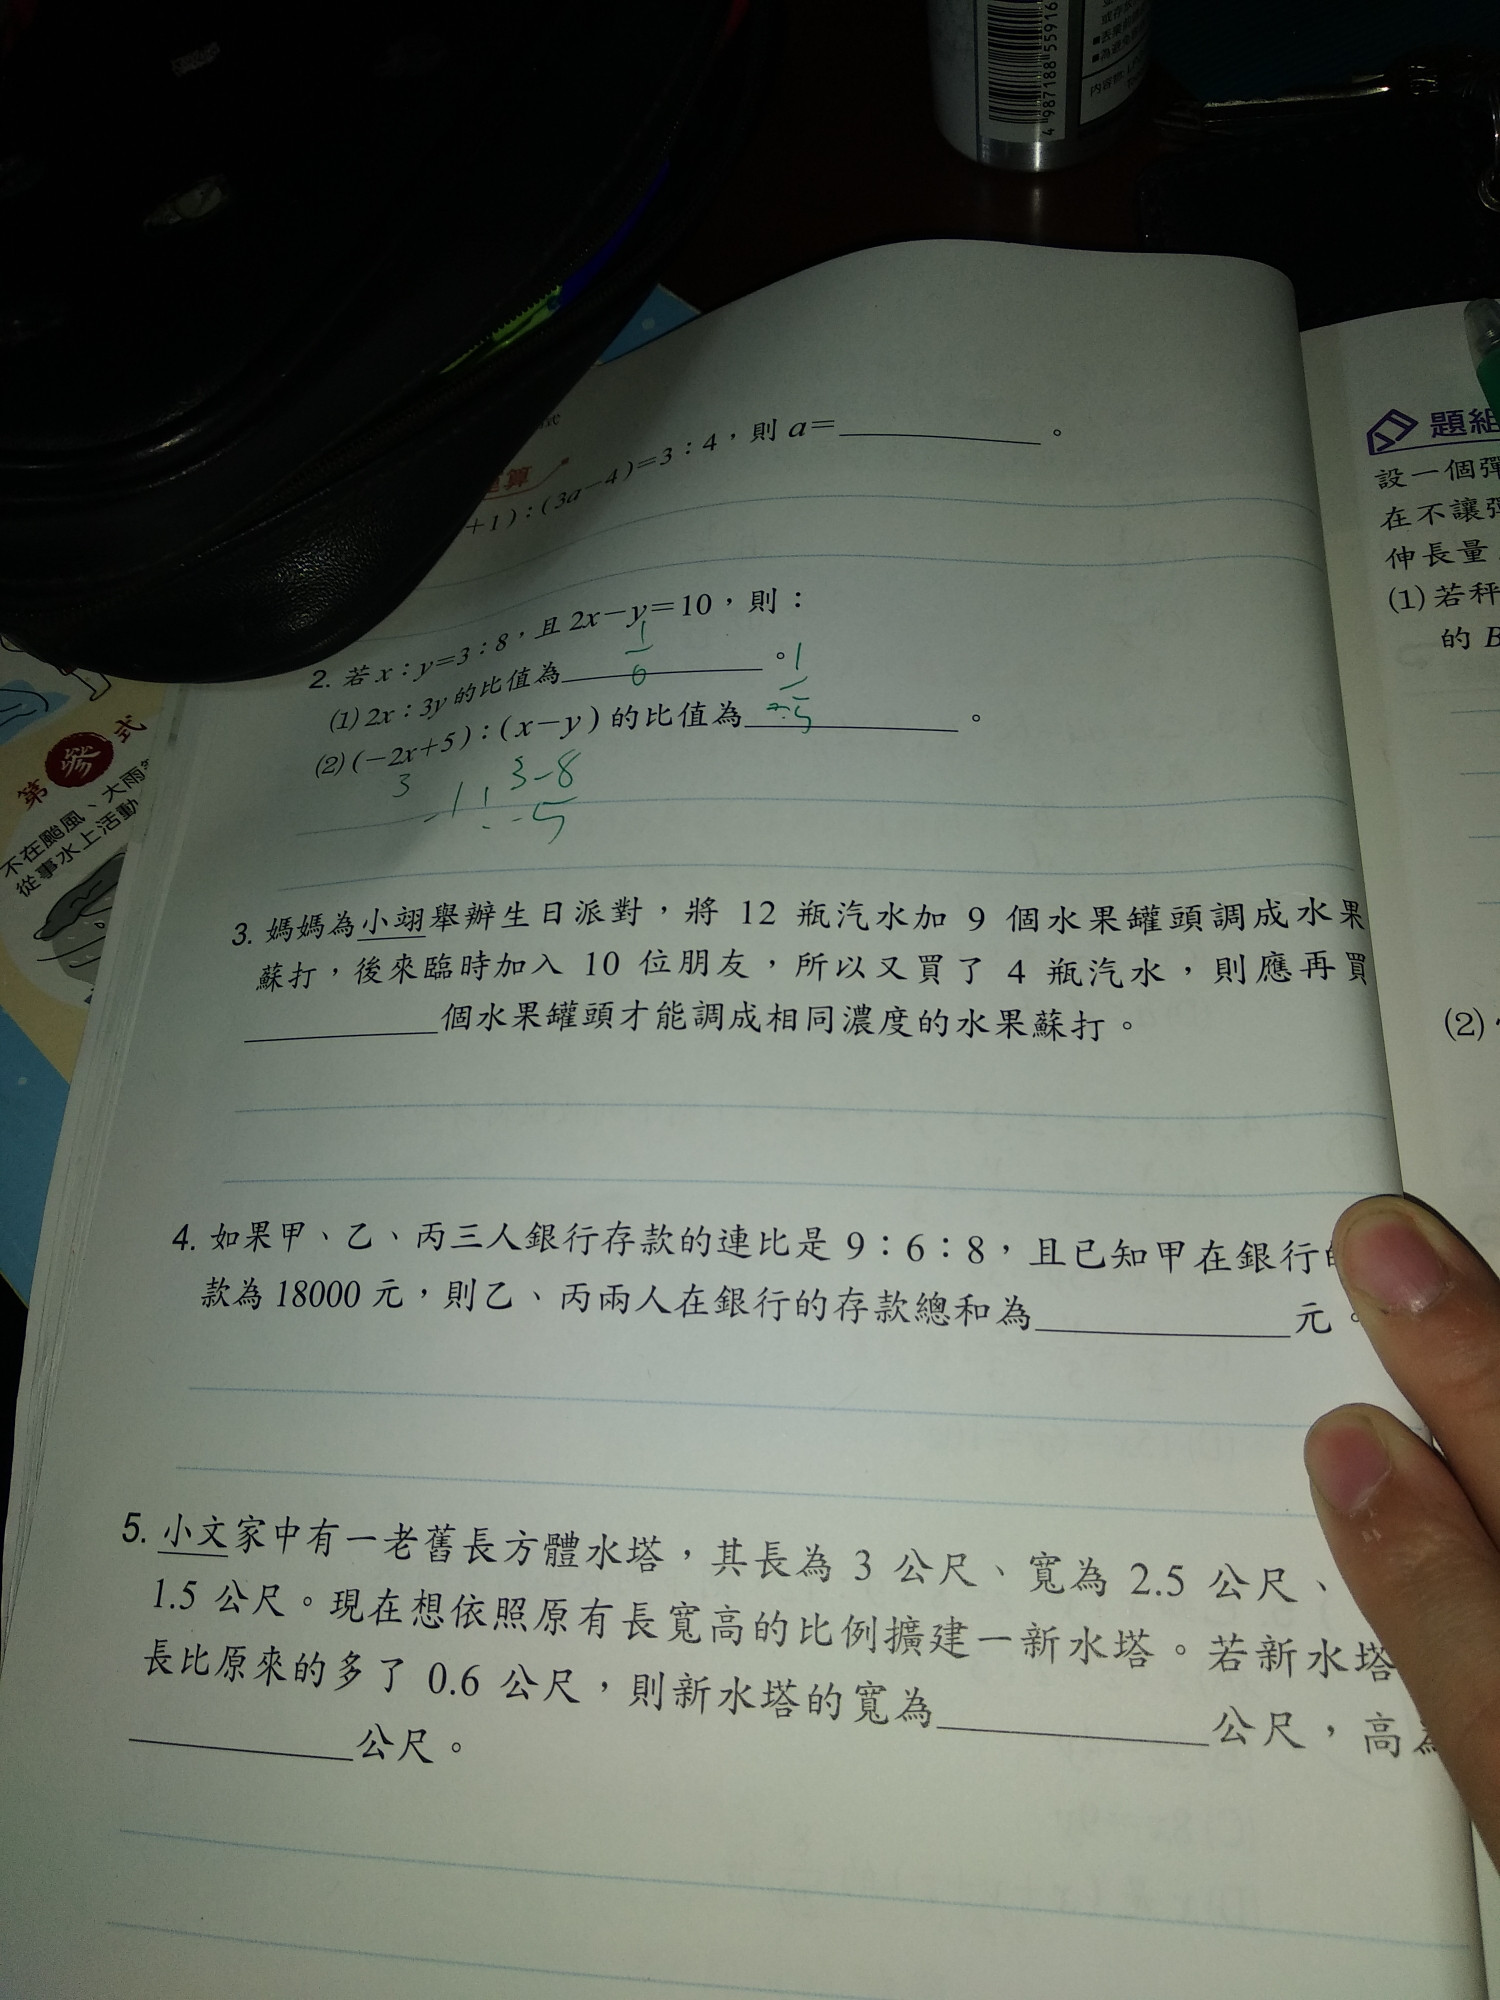 4987188 55916
+1)：(3a－4)＝3：4，則 a＝＿＿＿。
2. 若 x：y＝3：8，且 2x－y＝10，則：
(1) 2x：3y 的比值為＿＿＿。
1
6
(2) (－2x＋5)：(x－y) 的比值為＿＿＿。
1
3
3-8
-1：-5
3. 媽媽為小翊舉辦生日派對，將 12 瓶汽水加 9 個水果罐頭調成水果
蘇打，後來臨時加入 10 位朋友，所以又買了 4 瓶汽水，則應再買
＿＿＿個水果罐頭才能調成相同濃度的水果蘇打。
4. 如果甲、乙、丙三人銀行存款的連比是 9：6：8，且已知甲在銀行的
款為 18000 元，則乙、丙兩人在銀行的存款總和為＿＿＿元。
5. 小文家中有一老舊長方體水塔，其長為 3 公尺、寬為 2.5 公尺、
1.5 公尺。現在想依照原有長寬高的比例擴建一新水塔。若新水塔
長比原來的多了 0.6 公尺，則新水塔的寬為＿＿＿公尺，高為
＿＿＿公尺。
第參式
不在颱風、大雨
從事水上活動
題組
設一個彈
在不讓彈
伸長量
(1) 若秤
的 B
(2)